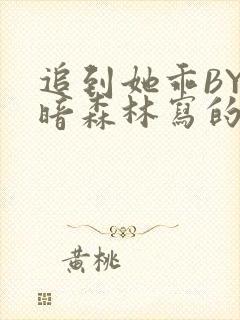 追到她乖BY
暗森林寫的
黃桃